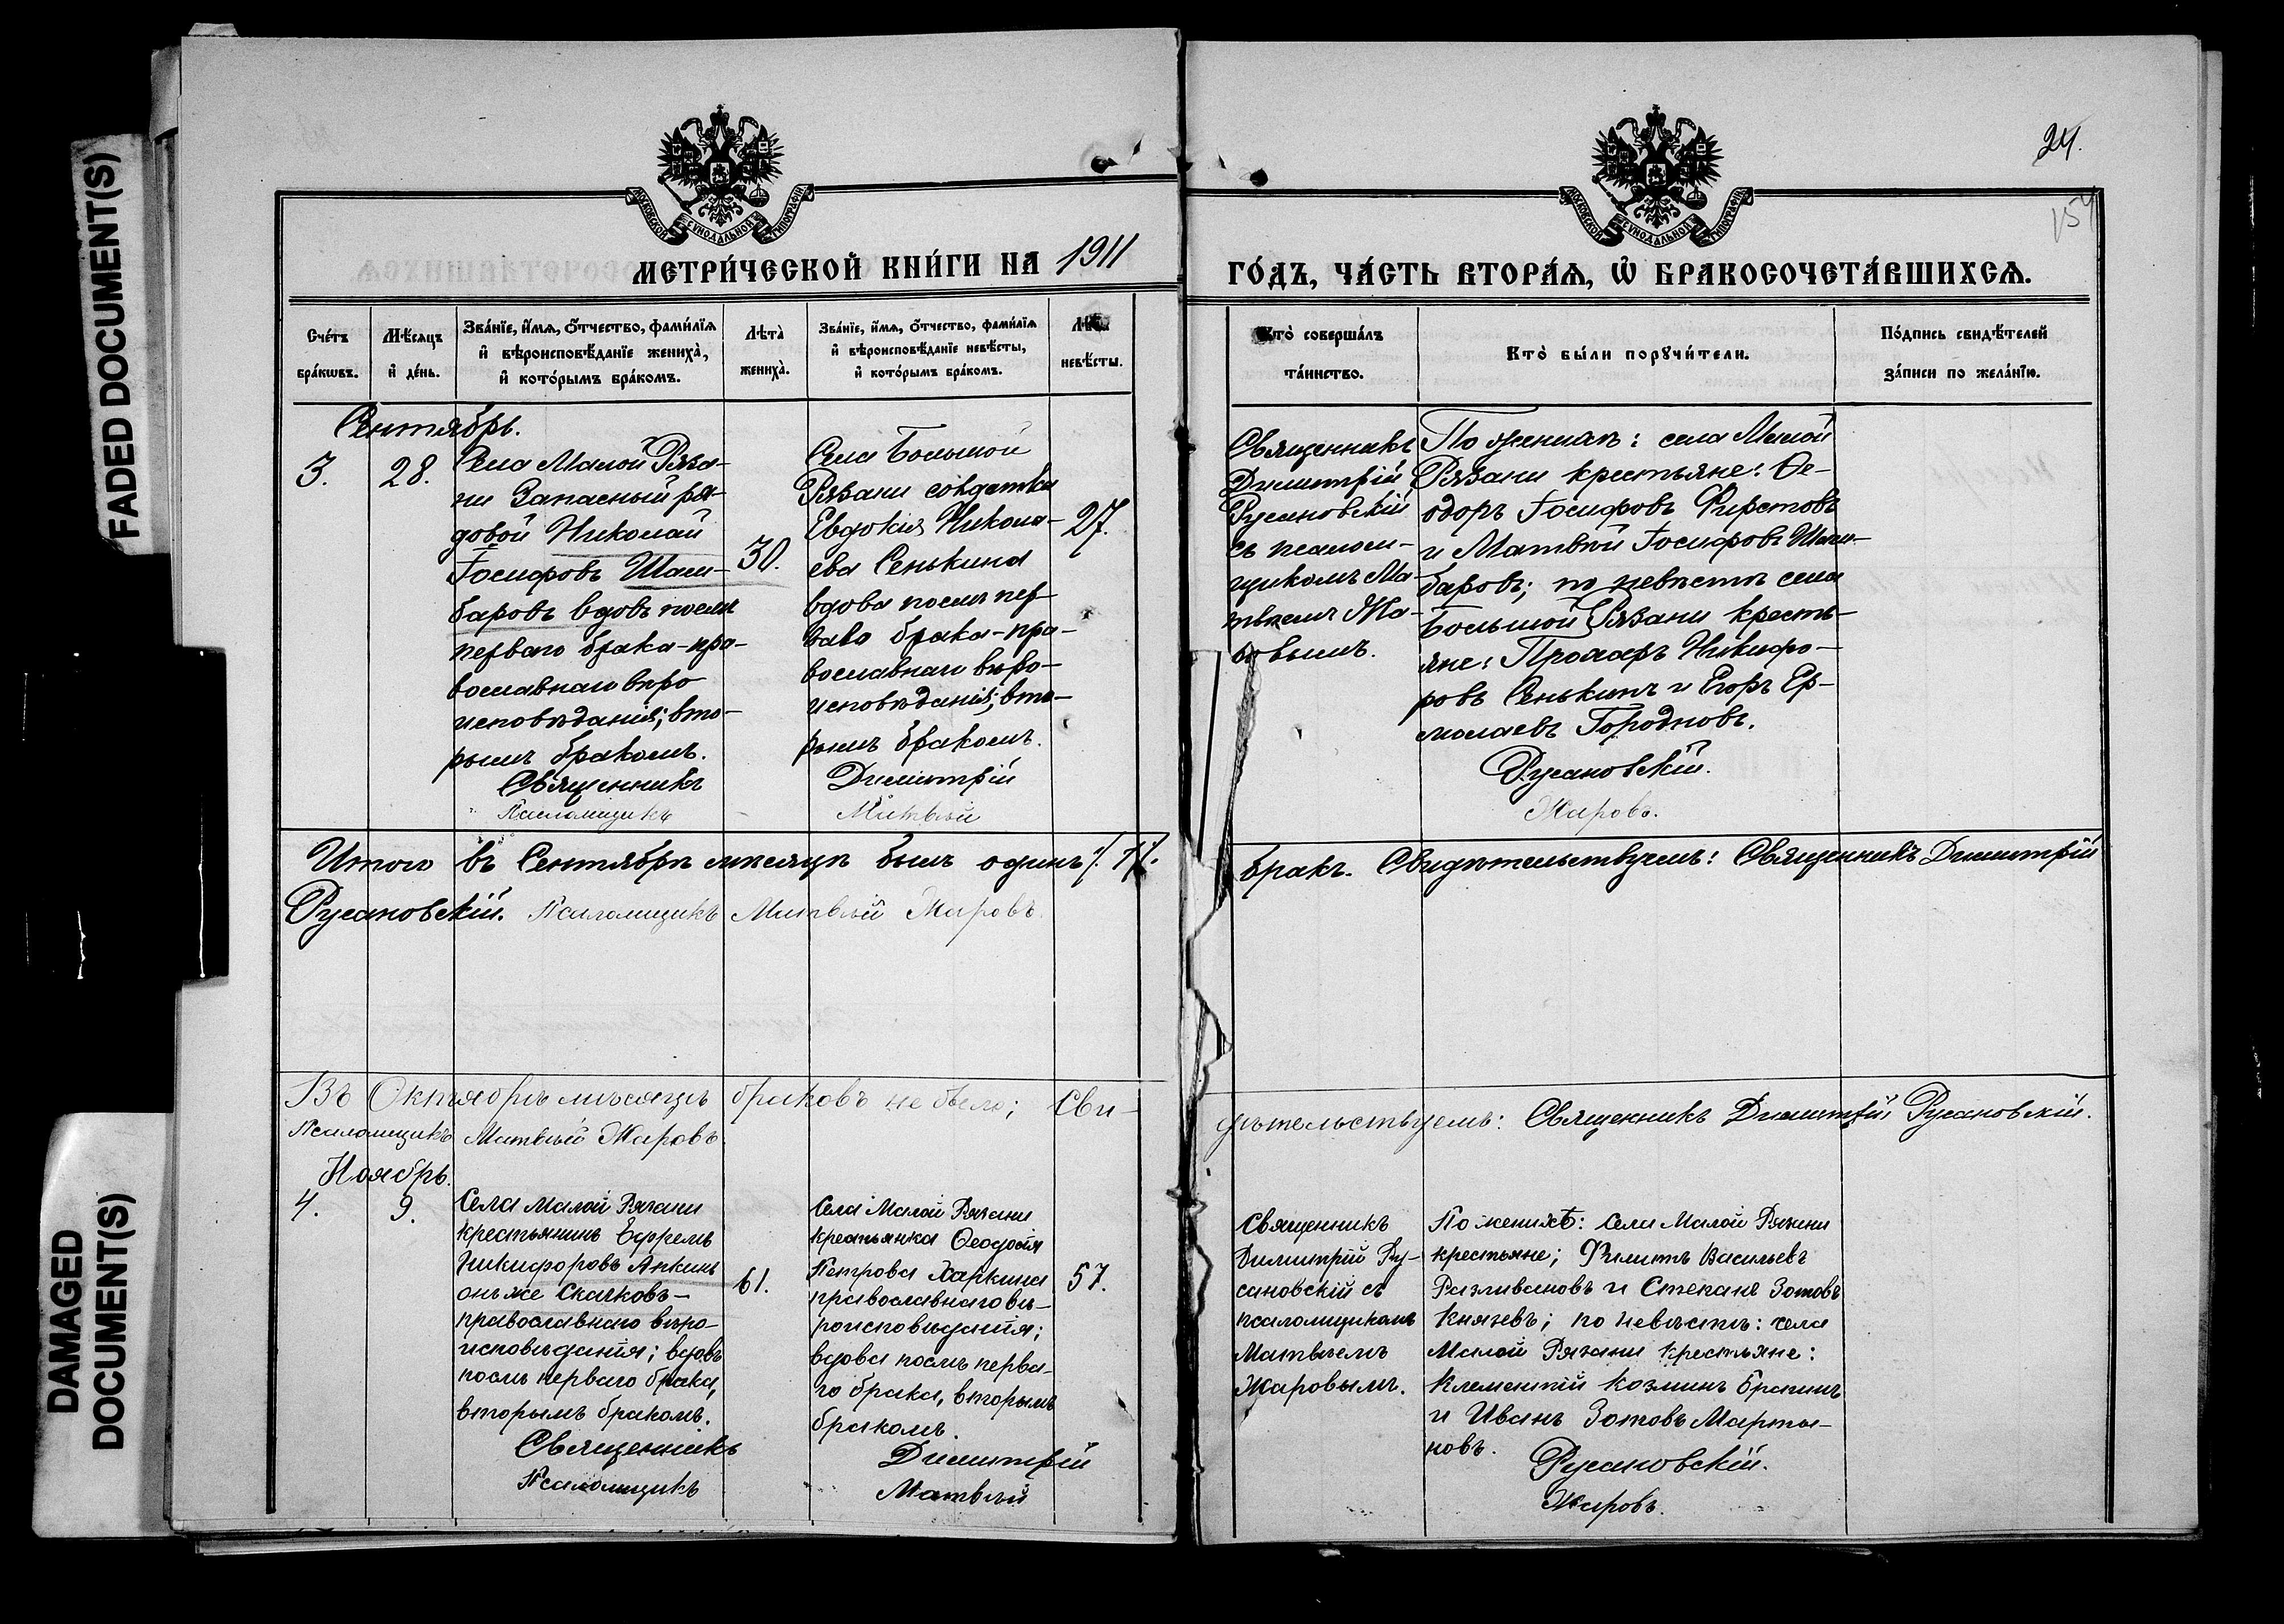 FADED DOCUMENT(S)
DAMAGED
DOCUMENT(S)
24.
МОСКОВСКОЙ СѴНОДАЛЬНОЙ ТИПОГРАФІИ
МОСКОВСКОЙ СѴНОДАЛЬНОЙ ТИПОГРАФІИ
МЕТРИ́ЧЕСКОЙ КНИ́ГИ НА 1911
ГО́ДЪ, ЧА́СТЬ ВТОРА́Ѧ, Ѡ БРАКОСОЧЕТА́ВШИХСѦ.
Сче́тъ
бра́кѡвъ.
Мѣ́сяцъ
и де́нь.
Зва́нїе, и́мѧ, о́тчество, фами́лїѧ
и вѣроисповѣ́данїе жениха̀,
и кото́рымъ бра́комъ.
Лѣта̀
жениха̀.
Зва́нїе, и́мѧ, о́тчество, фами́лїѧ
и вѣроисповѣ́данїе невѣ́сты,
и кото́рымъ бра́комъ.
Лѣта̀
невѣ́сты.
Кто̀ соверша́лъ
та́инство.
Кто̀ бы́ли порꙋчи́тели.
По́дпись свидѣ́телей
за́писи по жела́нїю.
Сентябрь.
3.
28.
Села Малой Ряза-
ни Запасный ря-
довой Николай
Іосифовъ Шам-
баровъ вдовъ послѣ
перваго брака - пра-
вославнаго вѣро
исповѣданія; вто-
рымъ бракомъ.
30.
Села Большой
Рязани солдатка
Евдокія Никола-
ева Сенькина
вдова послѣ пер-
ваго брака - пра-
вославнаго вѣро-
исповѣданія; вто-
рымъ бракомъ.
27.
Священникъ
Димитрій
Русановскій
съ псалом-
щикомъ Ма-
твѣемъ Жа-
ровымъ.
По женихѣ: села Малой
Рязани крестьяне: Ѳе-
одоръ Іосифовъ Фирстовъ
и Матвѣй Іосифовъ Шам-
баровъ; по невѣстѣ села
Большой Рязани кресть-
яне: Прохоръ Никифо-
ровъ Сенькинъ и Егоръ Ер-
молаевъ Городновъ.
Священникъ Димитрій Русановскій.
Псаломщикъ Матвѣй Жаровъ.
Итого въ Сентябрѣ мѣсяцѣ былъ одинъ /. 1 /. бракъ. Свидѣтельствуемъ: Священникъ Димитрій
Русановскій. Псаломщикъ Матвѣй Жаровъ.
Въ Октябрѣ мѣсяцѣ браковъ не было; Сви-
дѣтельствуемъ: Священникъ Димитрій Русановскій.
Псаломщикъ Матвѣй Жаровъ.
Ноябрь.
4.
9.
Села Малой Рязани
крестьянинъ Ефремъ
Никифоровъ Апкинъ
онъ же Скачковъ -
православнаго вѣро-
исповѣданія; вдовъ
послѣ перваго брака,
вторымъ бракомъ.
61.
Села Малой Рязани
крестьянка Ѳеодосія
Петрова Харкина
православнаго вѣ-
роисповѣданія;
вдова послѣ перва-
го брака, вторымъ
бракомъ.
57.
Священникъ
Димитрій Ру-
сановскій съ
псаломщикомъ
Матвѣемъ
Жаровымъ.
По женихѣ: села Малой Рязани
крестьяне; Филиппъ Васильевъ
Разливановъ и Степанъ Зотовъ
Князевъ; по невѣстѣ: села
Малой Рязани крестьяне:
Клементій Козминъ Брагинъ
и Иванъ Зотовъ Марты-
новъ.
Священникъ Димитрій Русановскій.
Псаломщикъ Матвѣй Жаровъ.